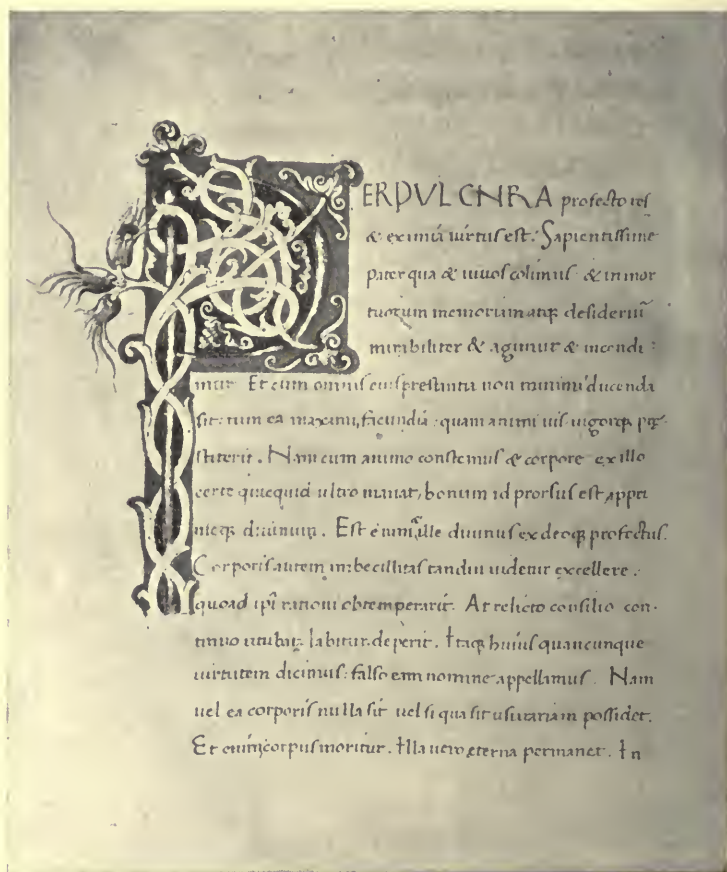 PERPULCHRA profecto res
& eximia uirtus est. Sapientissime
pater qua & uiuos colimus & in mor
tuorum memoriam atq desideriū
mirabiliter & agimur & incendi:
mur Et cum omnis eius prestantia non minimi ducenda
sit: tum ea maxime, facundia: quam animi uis uigorq
stiterit. Nam cum animo constemus & corpore ex illo
certe quicquid ultro manat, bonum id prorsus est appeti
diuinum. Est enim ille diuinus ex deoq profectus.
Corporis autem imbecillitas tandiu uidetur excellere.
quoad ipī rationi obtemperarit. At relicto consilio con-
tinuo labitur deperit. Itaq huius quancunque
uirtutem dicimus: falso eam nomine appellamus. Nam
uel ea corporis nulla sit uel si qua sit usurariam possidet.
Et enim corpus moritur. Illa uero ęterna permanet. In